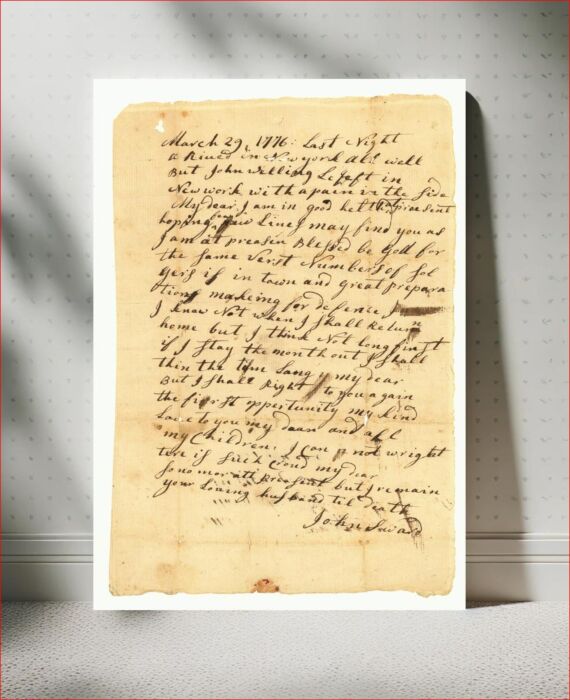 March 29, 1776: Last Night
a Rived in Newyork all well
But John Willing Left in
Newwork with a pain in the side
My dear I am in good helth at preasent
hoping faw Lines may find you as
I am at preasen Blessed be God for
the same Verst Numbers of Sol
gers is in town and great prepara
tions makeing for defence
I know Not when I shall Return
home but I think Not long first
if I stay the month out I shall
thin the time Lang my dear
But I shall Right to you again
the first oppertunity my kind
Love to you my dear and all
my Children. I can not wright
ter is such Croud my dear
so no mor att preasent but I remain
your Loving husband til death
John Seward